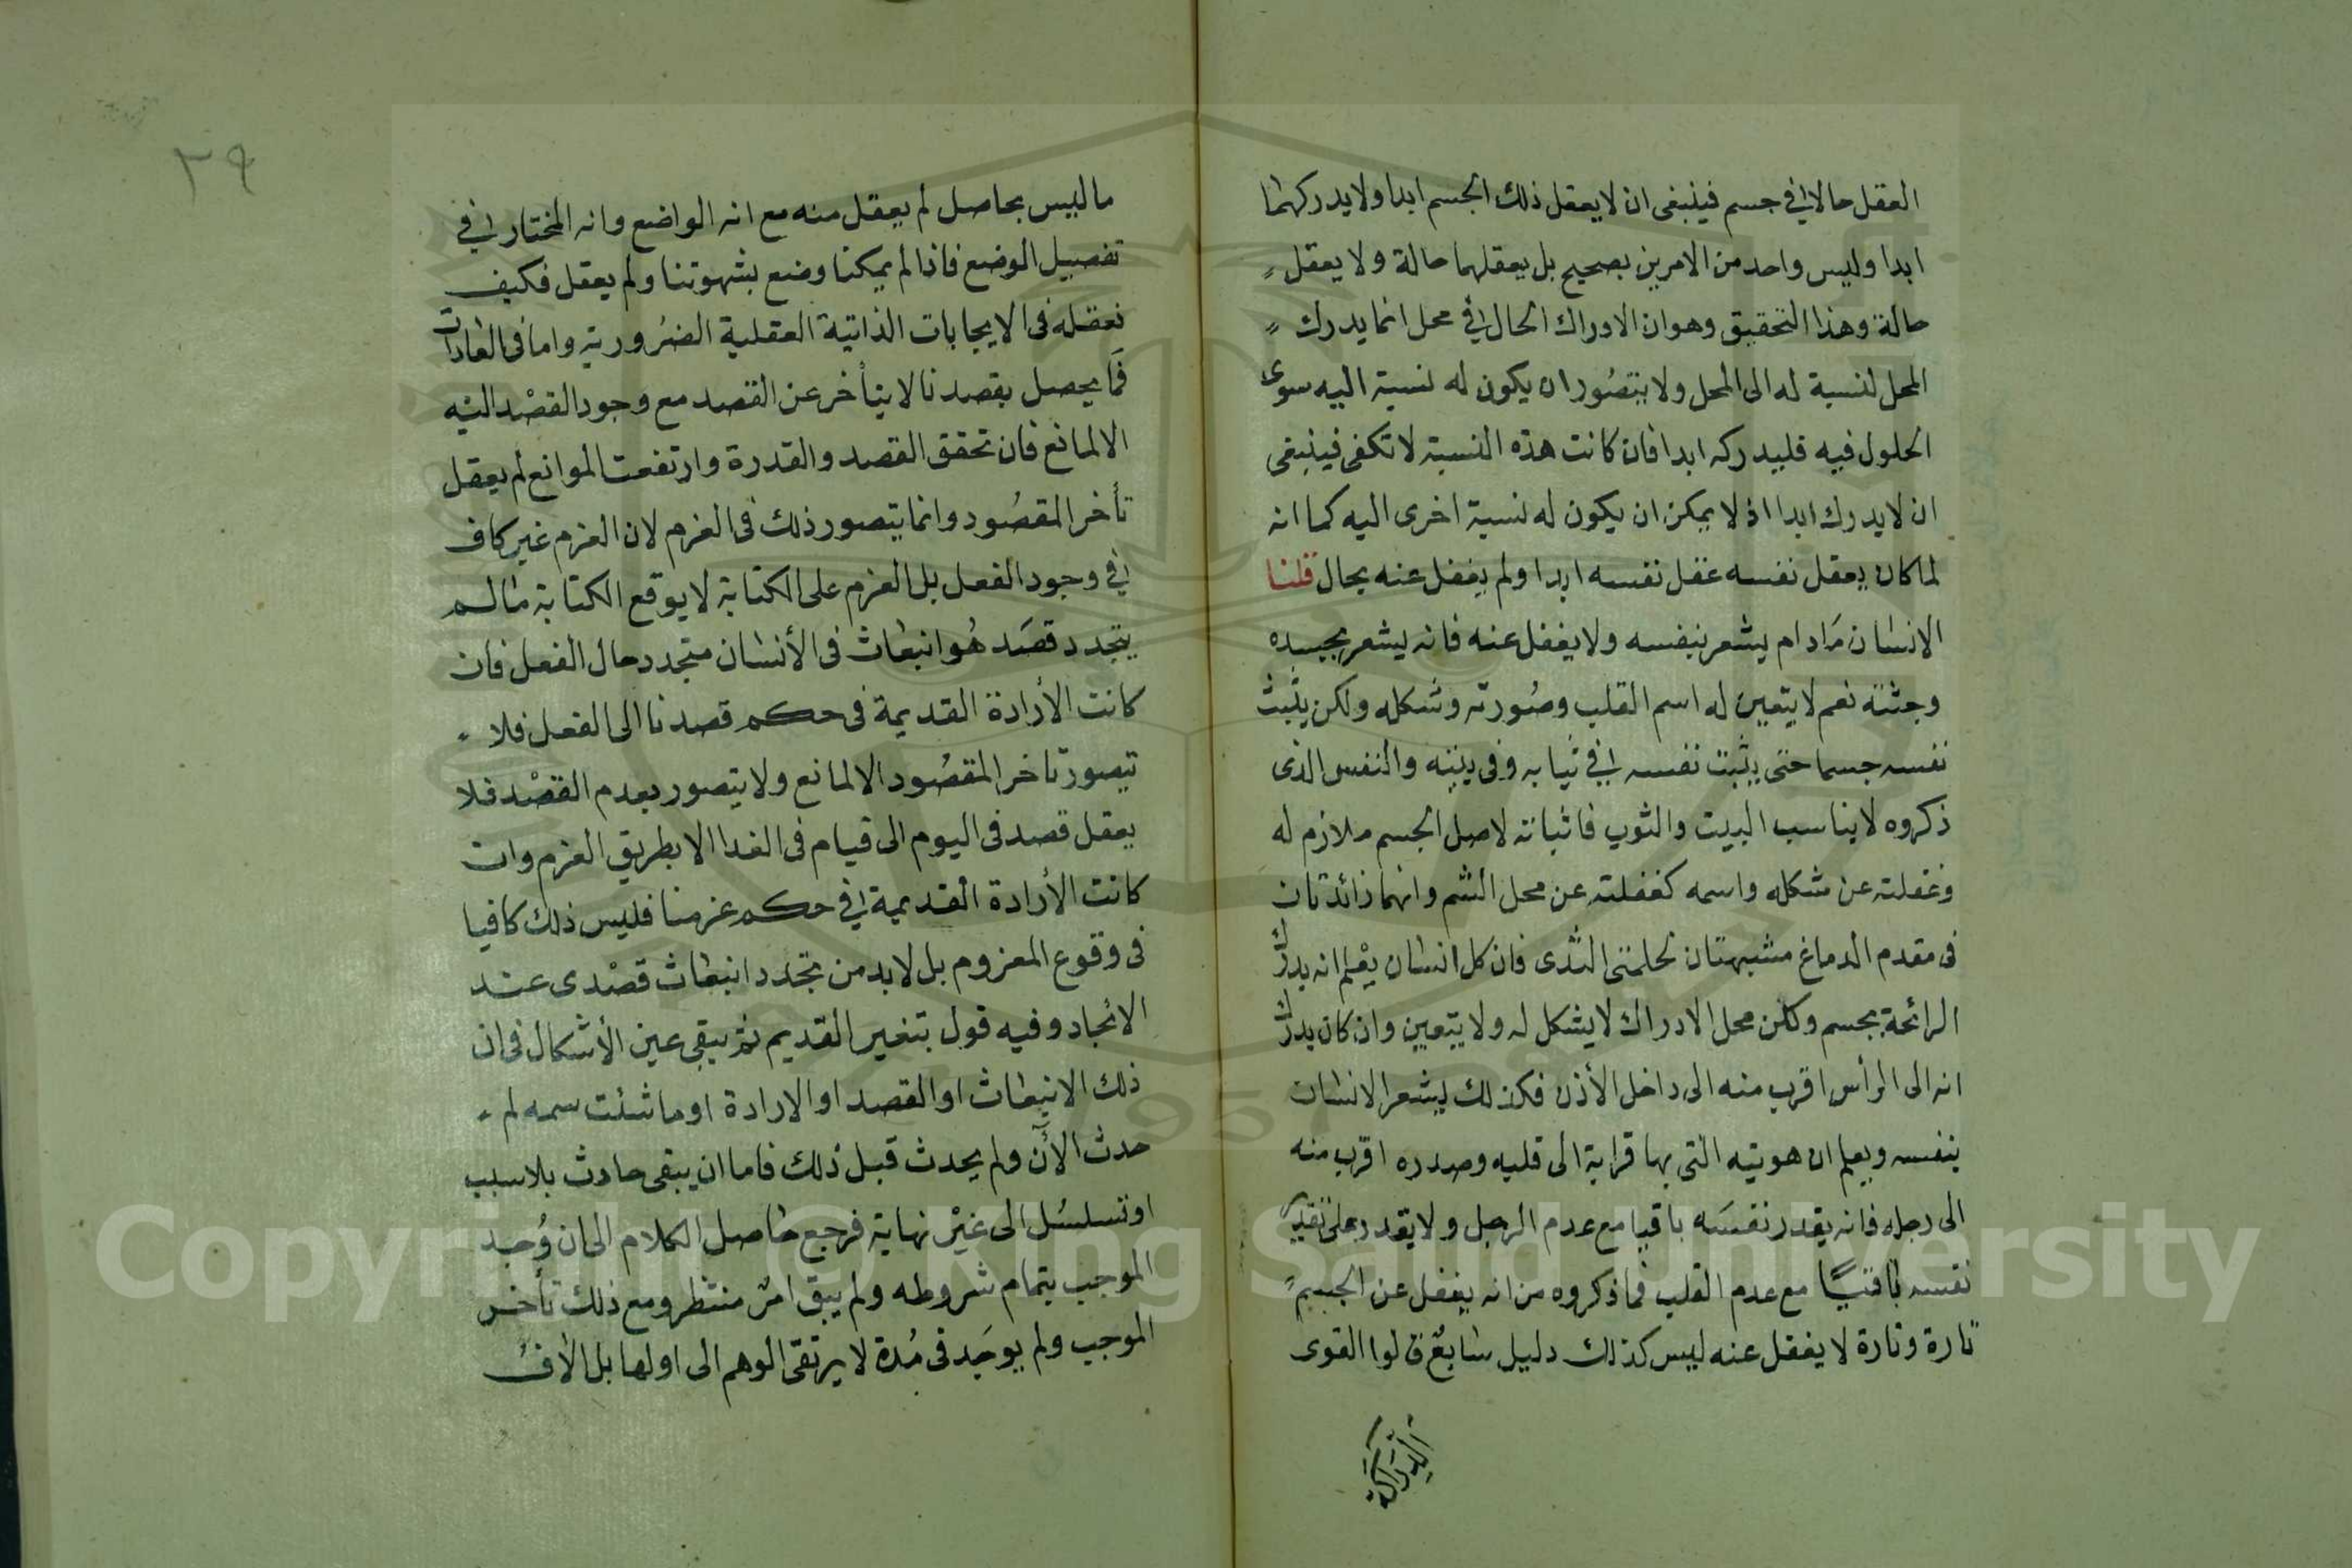 العقل حالا في جسم فينبغى ان لا يعقل ذلك الجسم ابدا ولا يدركهما
ابدا وليس واحد من الامرين بصحيح بل يعقلهما حالة ولا يعقل
حالة وهذا التحقيق وهو ان الادراك الحال في محل انما يدرك
المحل لنسبة له الى المحل ولا يتصور ان يكون له نسبة اليه سوى
الحلول فيه فليدركه ابدا فان كانت هذه النسبة لا تكفى فينبغى
ان لا يدرك ابدا اذ لا يمكن ان يكون له نسبة اخرى اليه كما انه
لما كان يعقل نفسه عقل نفسه ابدا ولم يغفل عنه بحال قلنا
الانسان مادام يشعر بنفسه ولا يغفل عنه فانه يشعر بجسده
وجثته نعم لا يتعين له اسم القلب وصورته وشكله ولكن يثبت
نفسه جسما حتى يثبت نفسه في ثيابه وفى بيته والنفس الذى
ذكروه لا يناسب البيت والثوب فاثباته لاصل الجسم ملازم له
وغفلته عن شكله واسمه كغفلته عن محل الشم وانهما زائدتان
فى مقدم الدماغ مشبهتان بحلمتى الثدى فان كل انسان يعلم انه يدرك
الرائحة بجسم ولكن محل الادراك لا يشكل له ولا يتعين وان كان يدرك
انه الى الرأس اقرب منه الى داخل الأذن فكذلك يشعر الانسان
بنفسه ويعلم ان هويته التى بها قرابة الى قلبه وصدره اقرب منه
الى رجله فانه يقدر نفسه باقيا مع عدم الرجل ولا يقدر على تقدير
نفسه باقيًا مع عدم القلب فما ذكروه من انه يغفل عن الجسم
تارة وتارة لا يغفل عنه ليس كذلك دليل سابع قالوا القوى
الدراكة
٣٩
ما ليس بحاصل لم يعقل منه مع انه الواضع وانه المختار في
تفصيل الوضع فاذا لم يمكنا وضع بشهوتنا ولم يعقل فكيف
نعقله فى الايجابات الذاتية العقلية الضرورية واما فى العادات
فما يحصل بقصدنا لا يتأخر عن القصد مع وجود القصد اليه
الا لمانع فان تحقق القصد والقدرة وارتفعت الموانع لم يعقل
تأخر المقصود وانما يتصور ذلك فى العزم لان العزم غير كاف
في وجود الفعل بل العزم على الكتابة لا يوقع الكتابة مالم
يتجدد قصد هو انبعاث فى الأنسان متجدد حال الفعل فان
كانت الأرادة القديمة فى حكم قصدنا الى الفعل فلا
يتصور تاخر المقصود الا لمانع ولا يتصور بعدم القصد فلا
يعقل قصد فى اليوم الى قيام فى الغدا الا بطريق العزم وان
كانت الأرادة القديمة في حكم عزمنا فليس ذلك كافيا
فى وقوع المعزوم بل لابد من تجدد انبعاث قصدى عند
الانجاد وفيه قول بتغير القديم ثم يبقى عين الأشكال فى ان
ذلك الانبعاث او القصد او الارادة او ما شئت سمه لم
حدث الأن ولم يحدث قبل ذلك فاما ان يبقى حادث بلا سبب
او تسلسل الى غير نهاية فرجع حاصل الكلام الى ان وُجد
الموجب بتمام شروطه ولم يبق امر منتظر ومع ذلك تأخر
الموجب ولم يوجد فى مدة لا يرتقى الوهم الى اولها بل الاف
Copyright © King Saud University
1957